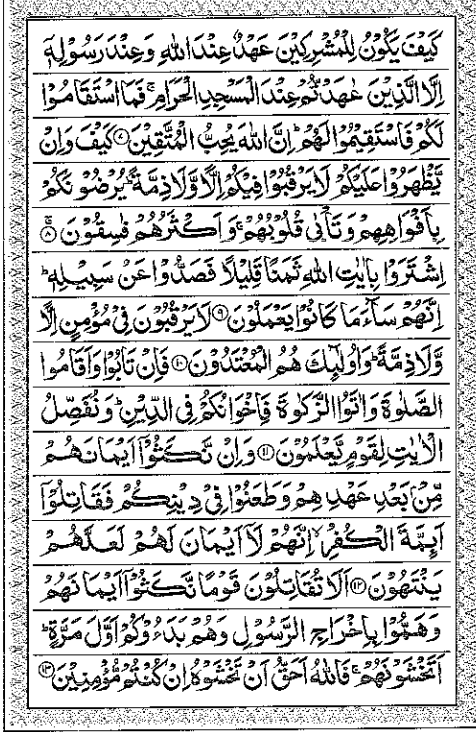 كَيۡفَ يَكُوۡنُ لِلۡمُشۡرِكِيۡنَ عَهۡدٌ عِنۡدَ اللّٰهِ وَعِنۡدَ رَسُوۡلِهٖۤ
اِلَّا الَّذِيۡنَ عٰهَدْتُّمۡ عِنۡدَ الۡمَسۡجِدِ الۡحَـرَامِ‌ ۚ فَمَا اسۡتَقَامُوۡا
لَـكُمۡ فَاسۡتَقِيۡمُوۡا لَهُمۡ‌ ؕ اِنَّ اللّٰهَ يُحِبُّ الۡمُتَّقِيۡنَ ۷ كَيۡفَ وَاِنۡ
يَّظۡهَرُوۡا عَلَيۡكُمۡ لَا يَرۡقُبُوۡا فِيۡكُمۡ اِلًّا وَّلَا ذِمَّةً‌ ؕ يُرۡضُوۡنَكُمۡ
بِاَفۡوَاهِهِمۡ وَتَاۡبٰى قُلُوۡبُهُمۡ‌ۚ وَاَكۡثَرُهُمۡ فٰسِقُوۡنَ‌ۚ ۸
اِشۡتَرَوۡا بِاٰيٰتِ اللّٰهِ ثَمَنًا قَلِيۡلًا فَصَدُّوۡا عَنۡ سَبِيۡلِهٖ‌ ؕ
اِنَّهُمۡ سَآءَ مَا كَانُوۡا يَعۡمَلُوۡنَ ۹ لَا يَرۡقُبُوۡنَ فِىۡ مُؤۡمِنٍ اِلًّا
وَّلَا ذِمَّةً‌ ؕ وَاُولٰۤٮِٕكَ هُمُ الۡمُعۡتَدُوۡنَ ۱۰ فَاِنۡ تَابُوۡا وَاَقَامُوا
الصَّلٰوةَ وَاٰتَوُا الزَّكٰوةَ فَاِخۡوَانُكُمۡ فِى الدِّيۡنِ‌ؕ وَنُفَصِّلُ
الۡاٰيٰتِ لِقَوۡمٍ يَّعۡلَمُوۡنَ ۱۱ وَاِنۡ نَّكَثُوۡۤا اَيۡمَانَهُمۡ
مِّنۡۢ بَعۡدِ عَهۡدِهِمۡ وَطَعَنُوۡا فِىۡ دِيۡـنِكُمۡ فَقَاتِلُوۡۤا
اَٮِٕمَّةَ الۡـكُفۡرِ‌ۙ اِنَّهُمۡ لَاۤ اَيۡمَانَ لَهُمۡ لَعَلَّهُمۡ
يَنۡتَهُوۡنَ ۱۲ اَلَا تُقَاتِلُوۡنَ قَوۡمًا نَّكَثُوۡۤا اَيۡمَانَهُمۡ
وَهَمُّوۡا بِاِخۡرَاجِ الرَّسُوۡلِ وَهُمۡ بَدَءُوۡكُمۡ اَوَّلَ مَرَّةٍ‌ ؕ
اَتَخۡشَوۡنَهُمۡ‌ ۚ فَاللّٰهُ اَحَقُّ اَنۡ تَخۡشَوۡهُ اِنۡ كُنۡتُمۡ مُّؤۡمِنِيۡنَ ۱۳